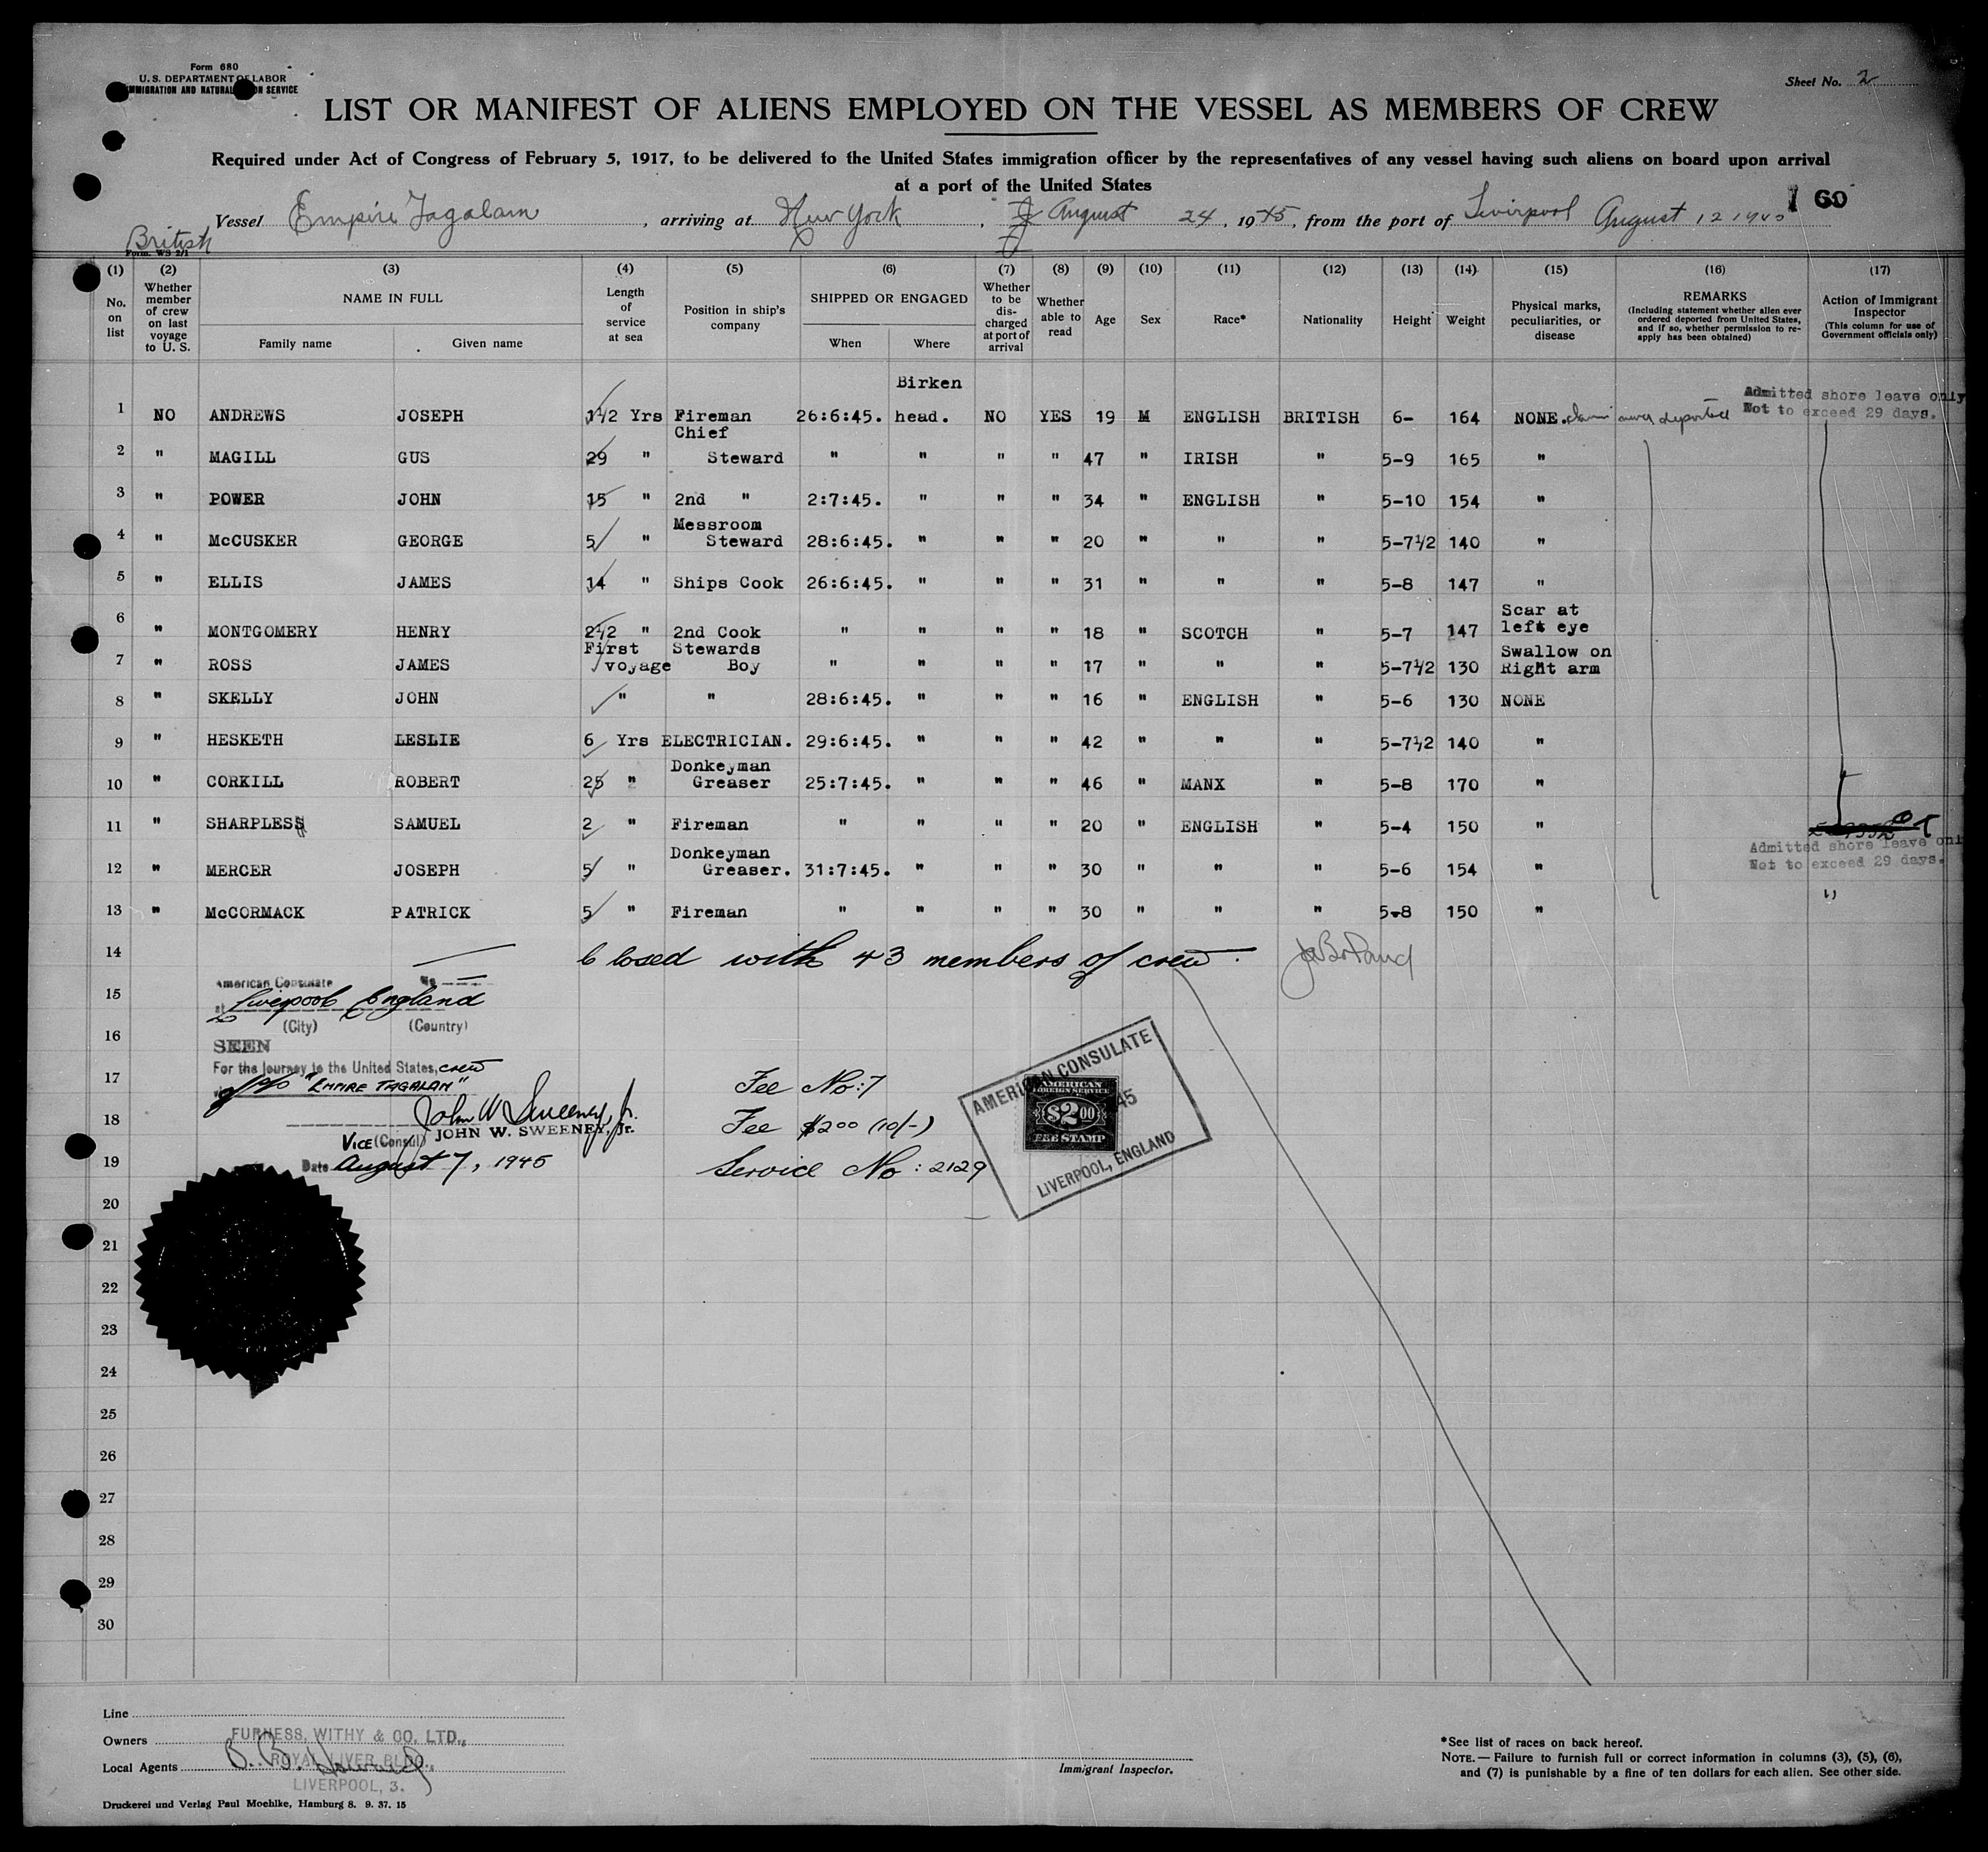 Form 680
U. S. DEPARTMENT OF LABOR
IMMIGRATION AND NATURALIZATION SERVICE
Sheet No. 2
LIST OR MANIFEST OF ALIENS EMPLOYED ON THE VESSEL AS MEMBERS OF CREW
Required under Act of Congress of February 5, 1917, to be delivered to the United States immigration officer by the representatives of any vessel having such aliens on board upon arrival
at a port of the United States
60
British Vessel Empire Tagalam, arriving at New York, August 24, 1945, from the port of Liverpool August 12 1945
Form. WS 2/1
(1) (2) (3) (4) (5) (6) (7) (8) (9) (10) (11) (12) (13) (14) (15) (16) (17)
No. on list
Whether member of crew on last voyage to U. S.
NAME IN FULL
Family name Given name
Length of service at sea
Position in ship's company
SHIPPED OR ENGAGED
When Where
Whether to be discharged at port of arrival
Whether able to read
Age
Sex
Race*
Nationality
Height
Weight
Physical marks, peculiarities, or disease
REMARKS
(Including statement whether alien ever ordered deported from United States, and if so, whether permission to reapply has been obtained)
Action of Immigrant Inspector
(This column for use of Government officials only)
1 NO ANDREWS JOSEPH 1 1/2 Yrs Fireman 26:6:45. Birken head. NO YES 19 M ENGLISH BRITISH 6- 164 NONE. never deported Admitted shore leave only Not to exceed 29 days.
2 " MAGILL GUS 29 " Chief Steward " " " " 47 " IRISH " 5-9 165 "
3 " POWER JOHN 15 " 2nd " 2:7:45. " " " 34 " ENGLISH " 5-10 154 "
4 " McCUSKER GEORGE 5 " Messroom Steward 28:6:45. " " " 20 " " " 5-7 1/2 140 "
5 " ELLIS JAMES 14 " Ships Cook 26:6:45. " " " 31 " " " 5-8 147 "
6 " MONTGOMERY HENRY 2 1/2 " 2nd Cook " " " " 18 " SCOTCH " 5-7 147 Scar at left eye
7 " ROSS JAMES First voyage Stewards Boy " " " " 17 " " " 5-7 1/2 130 Swallow on Right arm
8 " SKELLY JOHN " " 28:6:45. " " " 16 " ENGLISH " 5-6 130 NONE
9 " HESKETH LESLIE 6 Yrs ELECTRICIAN. 29:6:45. " " " 42 " " " 5-7 1/2 140 "
10 " CORKILL ROBERT 25 " Donkeyman Greaser 25:7:45. " " " 46 " MANX " 5-8 170 "
11 " SHARPLESS SAMUEL 2 " Fireman " " " " 20 " ENGLISH " 5-4 150 "
12 " MERCER JOSEPH 5 " Donkeyman Greaser. 31:7:45. " " " 30 " " " 5-6 154 " Admitted shore leave only Not to exceed 29 days.
13 " McCORMACK PATRICK 5 " Fireman " " " " 30 " " " 5-8 150 " "
14 Closed with 43 members of crew.
15
American Consulate No
at Liverpool England
(City) (Country)
16
SEEN
For the journey to the United States, crew
17
of s/s "EMPIRE TAGALAM"
Fee No: 7
18
John W Sweeney, Jr.
Fee $2.00 (10/-)
VICE (Consul) JOHN W. SWEENEY, Jr.
19
Date August 7, 1945
Service No: 2129
AMERICAN CONSULATE
45
LIVERPOOL, ENGLAND
AMERICAN
FOREIGN SERVICE
$2.00
FEE STAMP
20
21
22
23
24
25
26
27
28
29
30
Line
Owners FURNESS, WITHY & CO. LTD.,
ROYAL LIVER BLDG.,
Local Agents
LIVERPOOL, 3.
Druckerei und Verlag Paul Moehlke, Hamburg 8. 9. 37. 15
Immigrant Inspector.
*See list of races on back hereof.
NOTE.—Failure to furnish full or correct information in columns (3), (5), (6),
and (7) is punishable by a fine of ten dollars for each alien. See other side.